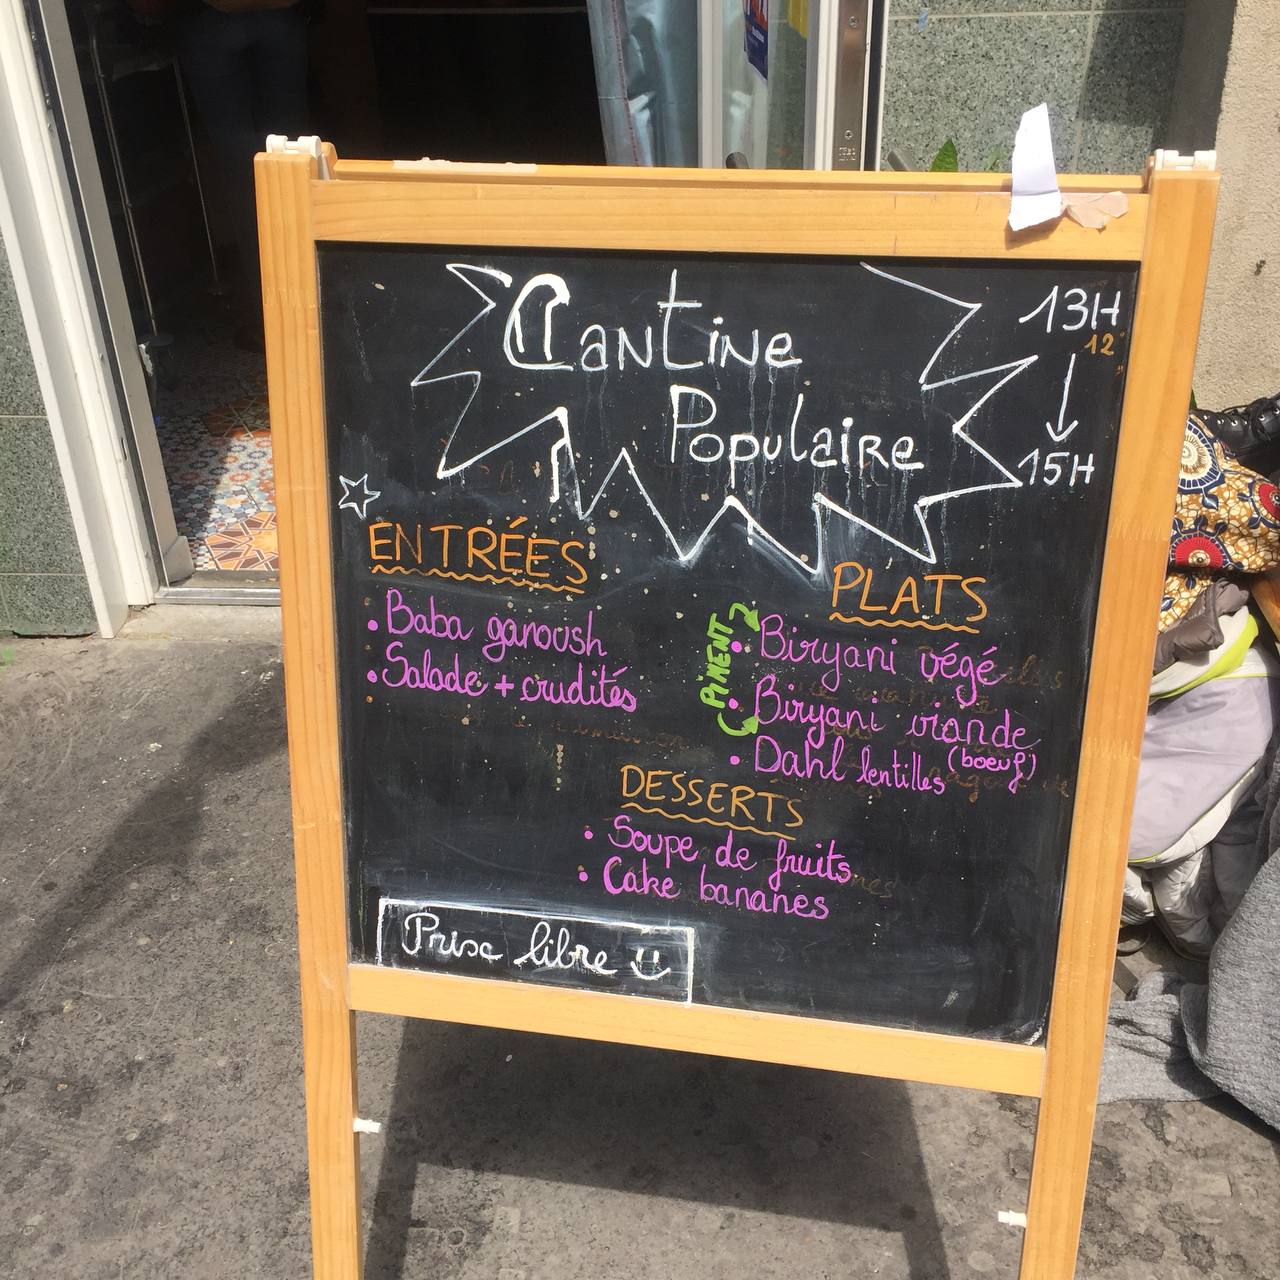 Cantine
Populaire
13H
12"
15H
ENTRÉES
• Baba ganoush
• Salade + crudités
PLATS
PIMENT
• Biryani végé
• Biryani viande
(boeuf)
• Dahl lentilles
DESSERTS
• Soupe de fruits
• Cake bananes
Prix libre